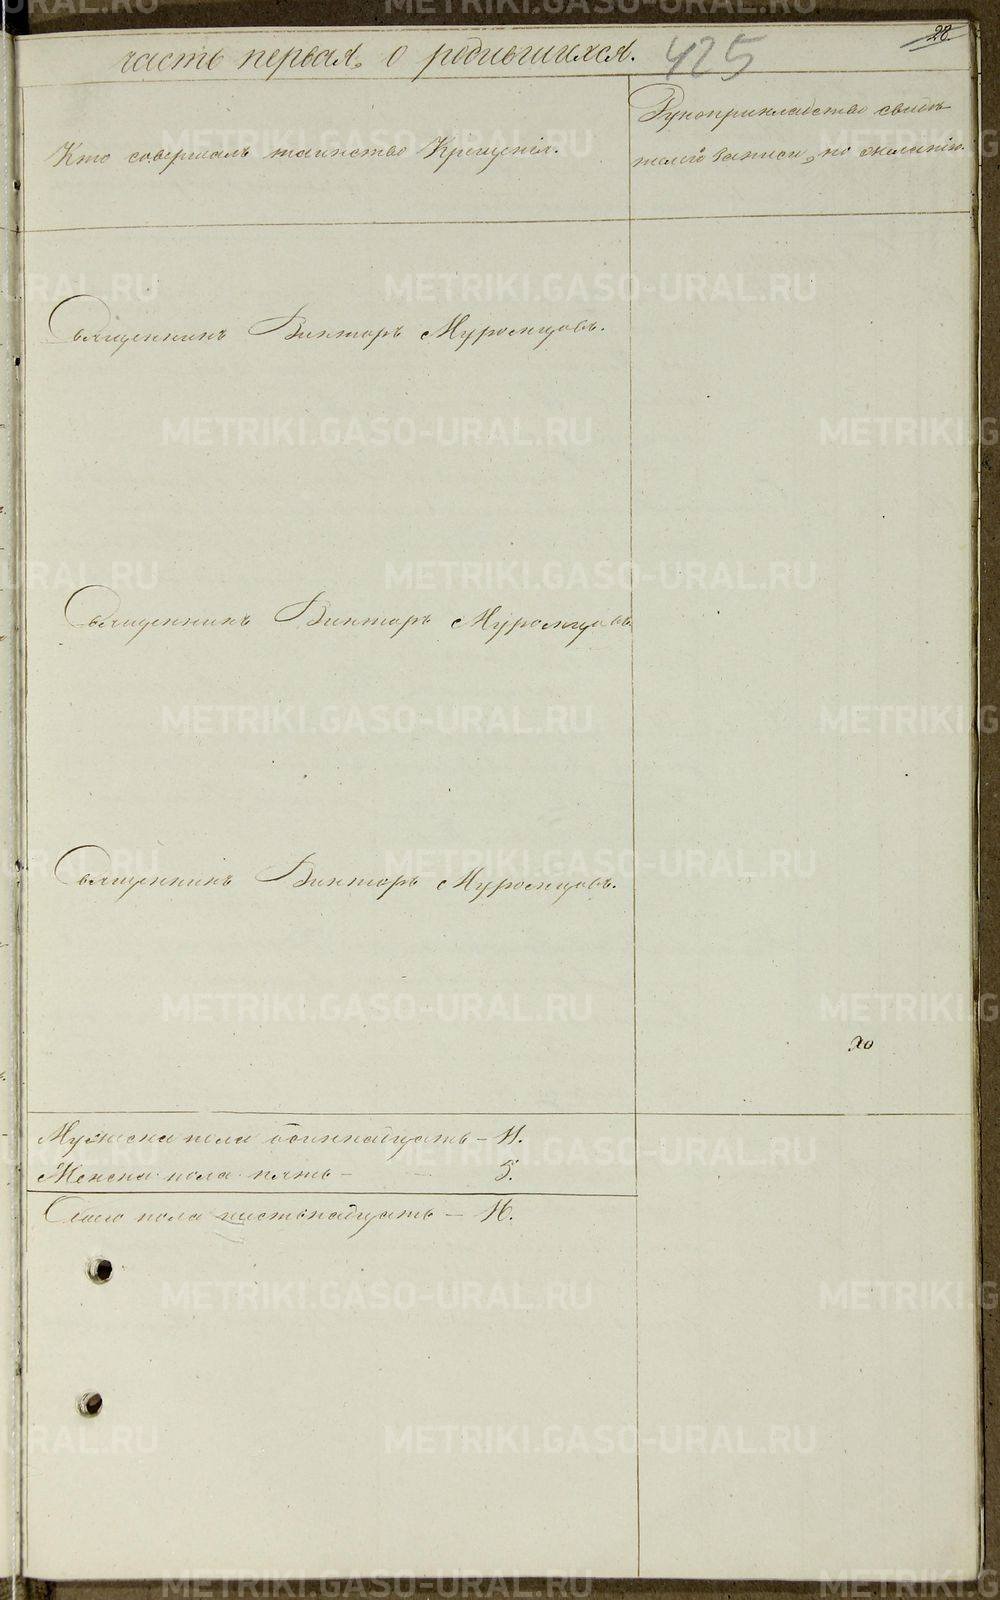 28.
часть первая, о родившихся. 425
Кто совершалъ таинство Крещенія.
Рукоприкладство свидѣ-
телей записи, по желанію.
Священникъ Викторъ Муромцовъ.
Священникъ Викторъ Муромцовъ
Священникъ Викторъ Муромцовъ.
Мужеска пола одиннадцать – 11.
Женска пола пять – 5.
Обоего пола шестьнадцать – 16.
METRIKI.GASO-URAL.RU